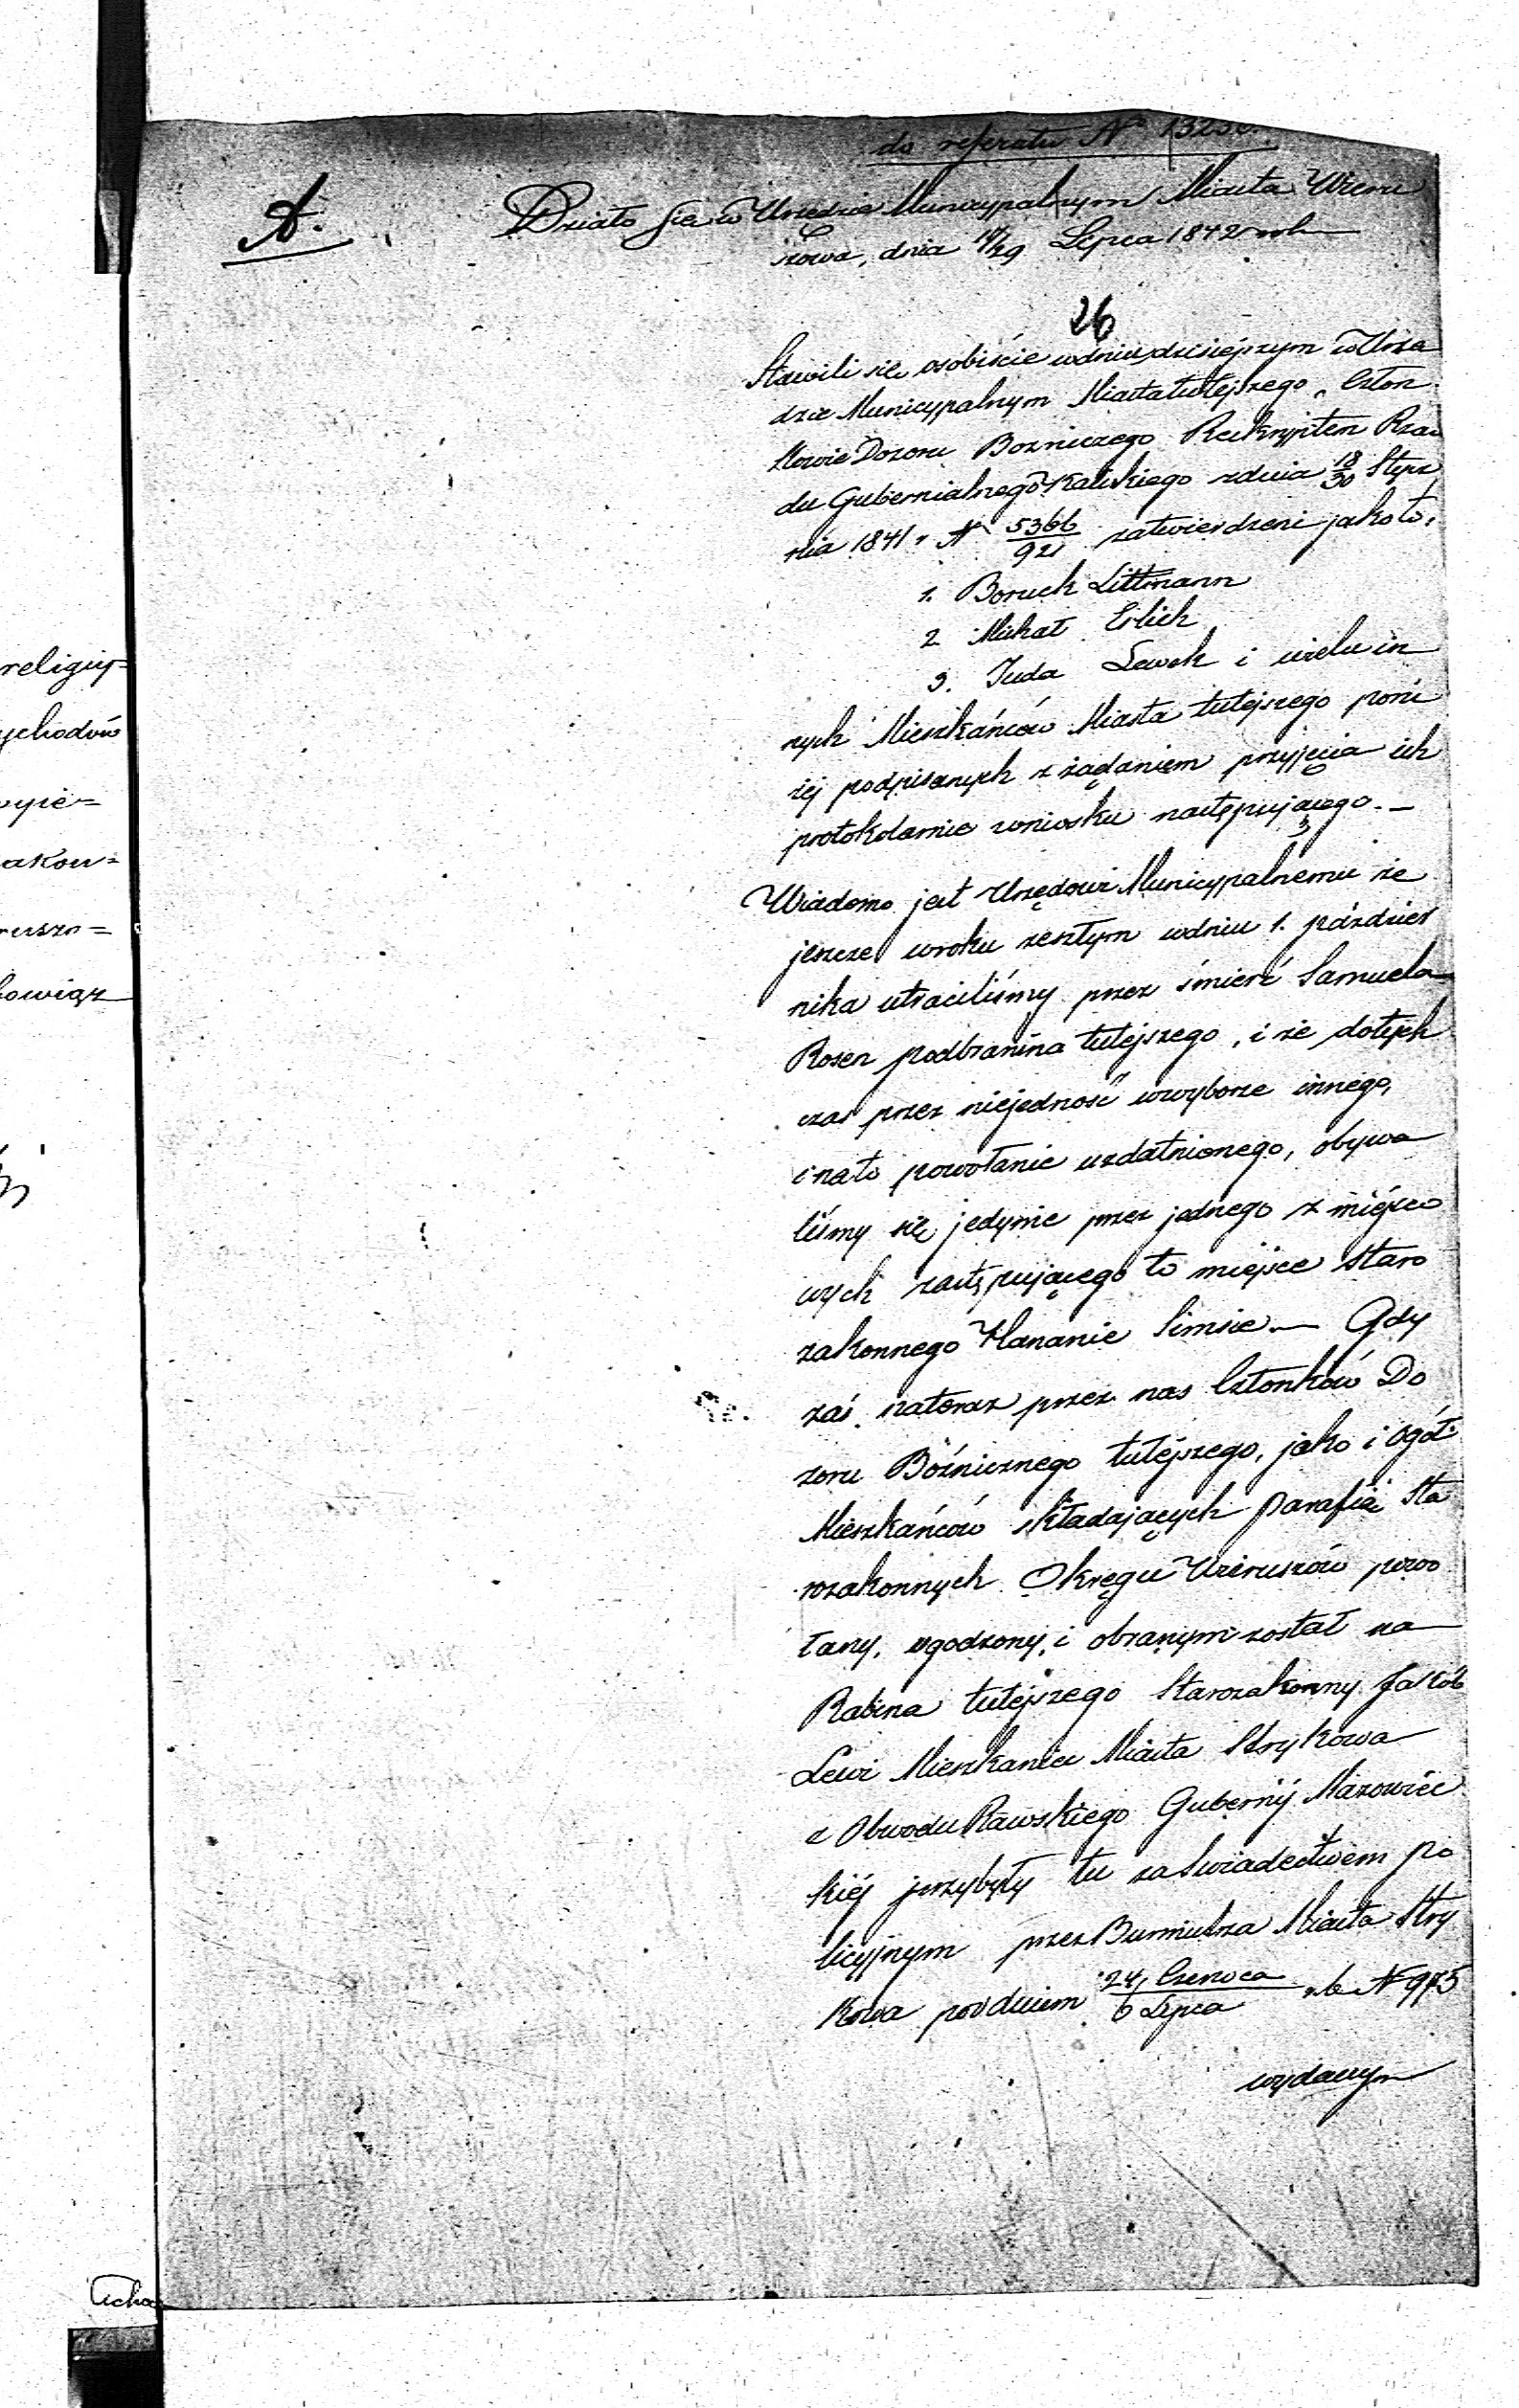 do referatu No 1323
A.
Działo się w Urzędzie Municypalnym Miasta Wieru
szowa, dnia 17/29 Lipca 1842 rok
26
Stawili się osobiście wdniu dzisiejszym w Urzę
dzie Municypalnym Miasta tutejszego, Człon
kowie Dozoru Bozniczego Reskryptem Rzą
du Gubernialnego Kaliskiego zdnia 18/30 Stycz
nia 1841 r N 5366/921 zatwierdzeni jako to,
1. Boruch Littmann
2 Michał Erlich
3. Juda Lewek i wielu in
nych Mieszkańców Miasta tutejszego poni
żej podpisanych z żądaniem przyjęcia ich
protokolarnie wniosku następującego. —
Wiadomo jest Urzędowi Municypalnemu że
jeszcze wroku zeszłym wdniu 1. paździer
nika utraciliśmy przez śmierć Samuela
Rosen podbranina tutejszego, i że dotych
czas przez niejedność wwyborze innego,
i na to powołanie uzdatnionego, obywa
liśmy się jedynie przez jednego z miejsco
wych zastępującego to miejsce staro
zakonnego Hananie Simsie — Gdy
zaś nateraz przez nas Członków Do
zoru Bóżnicznego tutejszego, jako i ogół
Mieszkańców składających Parafią Sta
rozakonnych Okręgu Wieruszów powo
łany, ugodzony, i obranym został na
Rabina tutejszego Starozakonny Jakób
Lewi Mieszkaniec Miasta Strykowa
z Obwodu Rawskiego Gubernij Mazowiec
kiéj przybyły tu za Swiadectwem po
licyjnym przez Burmistrza Miasta Stry
kowa pod dniem 24 Czerwca/6 Lipca r. b. N 975
wydanym
religijy=
ychodów
wyie=
akow=
rusza=
bowiąz
Licha